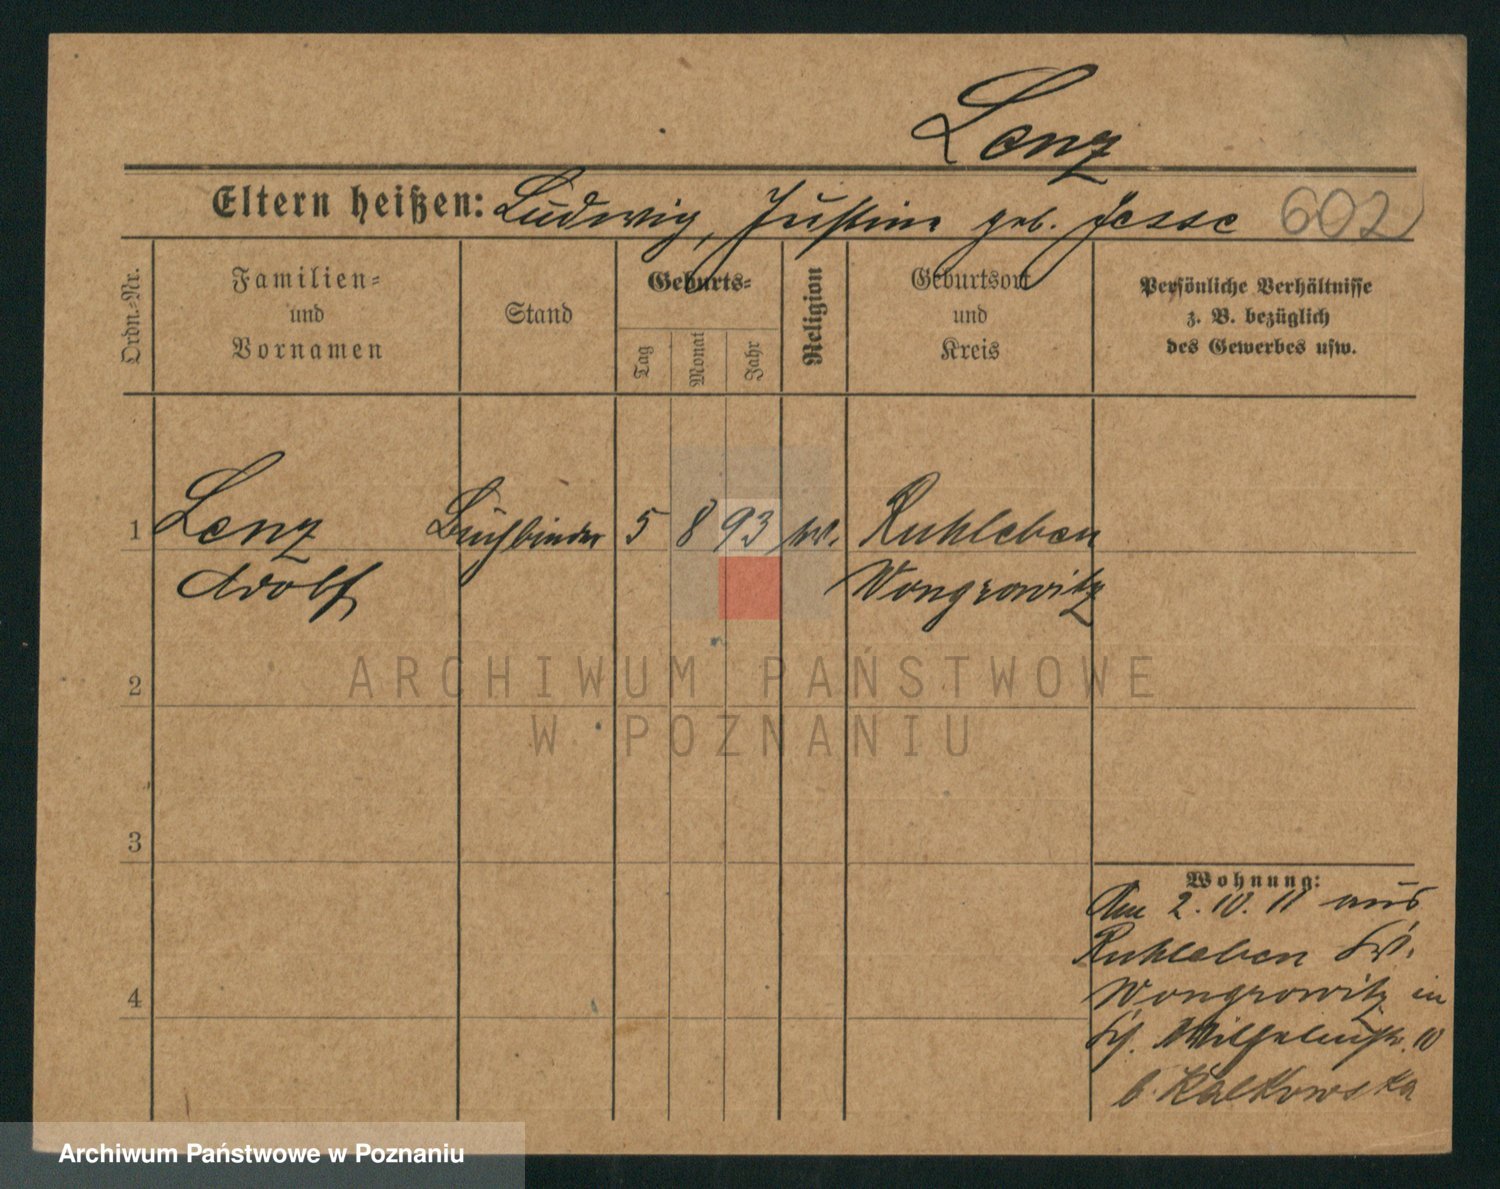 Lenz
Eltern heißen: Ludwig, Justine geb. Jesse 602
Ordn.-Nr.
Familien-
und
Vornamen
Stand
Geburts-
Tag
Monat
Jahr
Religion
Geburtsort
und
Kreis
Persönliche Verhältnisse
z. B. bezüglich
des Gewerbes usw.
1 Lenz Buchbinder 5 8 93 ev. Ruhleben
Adolf Wongrowitz
2
ARCHIWUM PAŃSTWOWE
W POZNANIU
3
Wohnung:
Am 2.10.11 aus
Ruhleben Kr.
Wongrowitz in
Wilhelmstr. 10
b. Kalkowska
4
Archiwum Państwowe w Poznaniu